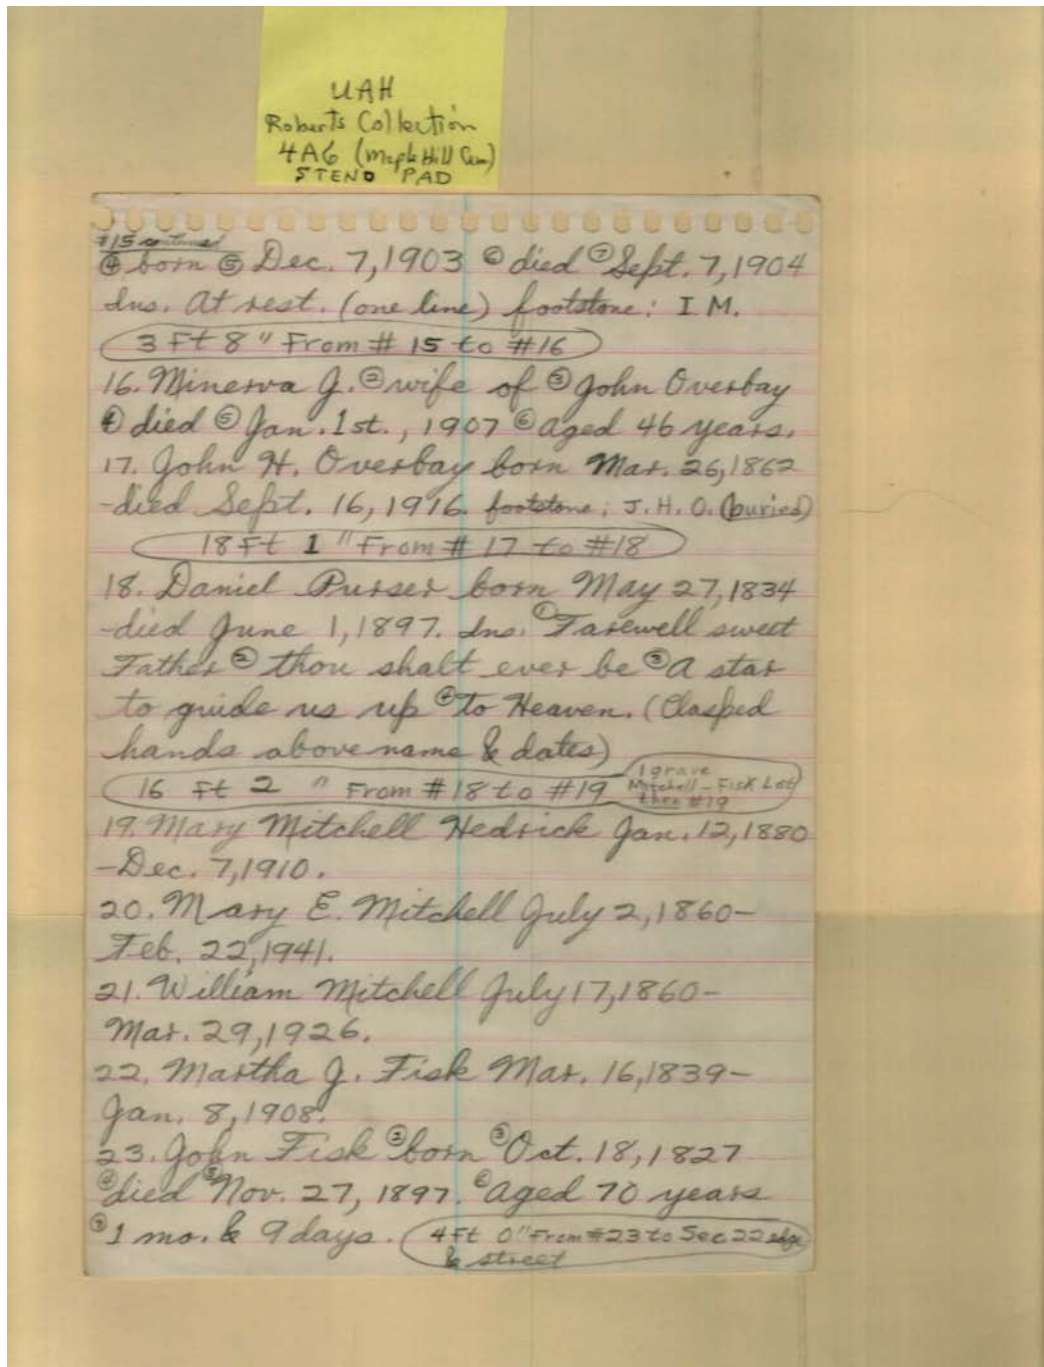 UAH
Roberts Collection
4A6 (Maple Hill Cem)
STENO PAD
#15 continued
④ born ⑤ Dec. 7, 1903 ⑥ died ⑦ Sept. 7, 1904
Ins. At rest. (one line) footstone: I. M.
3 Ft 8" From # 15 to #16
16. Minerva J. ② wife of ③ John Overbay
④ died ⑤ Jan. 1st., 1907 ⑥ aged 46 years.
17. John H. Overbay born Mar. 26, 1862
-died Sept. 16, 1916. footstone: J. H. O. (buried)
18 Ft 1" From # 17 to #18
18. Daniel Purser born May 27, 1834
-died June 1, 1897. Ins. ① Farewell sweet
Father ② thou shalt ever be ③ A star
to guide us up ④ to Heaven. (Clasped
hands above name & dates)
16 Ft 2 " From #18 to #19
1 grave
Mitchell - Fisk Lot
then #19
19. Mary Mitchell Hedrick Jan. 12, 1880
-Dec. 7, 1910.
20. Mary E. Mitchell July 2, 1860-
Feb. 22, 1941.
21. William Mitchell July 17, 1860-
Mar. 29, 1926.
22. Martha J. Fisk Mar. 16, 1839-
Jan. 8, 1908.
23. John Fisk ② born ③ Oct. 18, 1827
④ died ⑤ Nov. 27, 1897. ⑥ aged 70 years
⑦ 1 mo. & 9 days.
4 Ft 0" From #23 to Sec 22 edge
& street